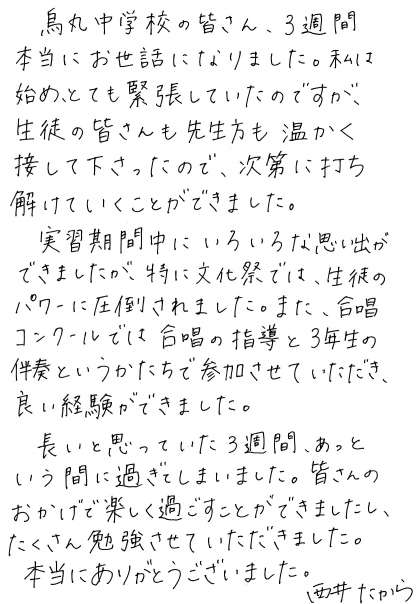 烏丸中学校の皆さん、3週間
本当にお世話になりました。私は
始め、とても緊張していたのですが、
生徒の皆さんも先生方も温かく
接して下さったので、次第に打ち
解けていくことができました。
実習期間中にいろいろな思い出が
できましたが、特に文化祭では、生徒の
パワーに圧倒されました。また、合唱
コンクールでは合唱の指導と3年生の
伴奏というかたちで参加させていただき、
良い経験ができました。
長いと思っていた3週間、あっと
いう間に過ぎてしまいました。皆さんの
おかげで楽しく過ごすことができましたし、
たくさん勉強させていただきました。
本当にありがとうございました。
西井たから